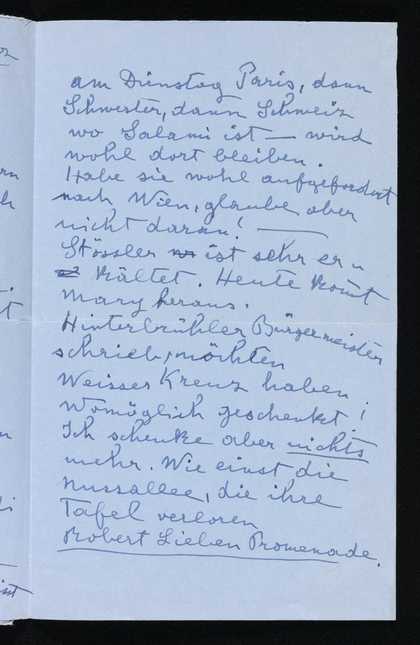 am Dienstag Paris, dann
Schwester, dann Schweiz
wo Salami ist — wird
wohl dort bleiben.
Habe sie wohl aufgefordert
nach Wien, glaube aber
nicht daran! —
Stössler ist sehr er-
kältet. Heute komt
Mary heraus.
Hinterbrühler Bürgermeister
schrieb, möchten
Weisses Kreuz haben,
womöglich geschenkt!
Ich schenke aber nichts
mehr. Wie einst die
Nussallee, die ihre
Tafel verloren
Robert Lieben Promenade.